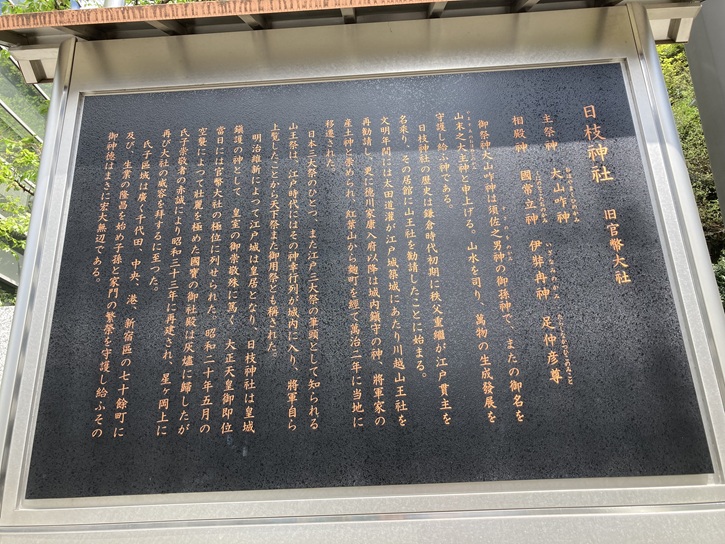 日枝神社　旧官幣大社
主祭神　大山咋神
相殿神　國常立神　伊弉冉神　足仲彦尊
御祭神大山咋神は須佐之男神の御孫神で、またの御名を
山末之大主神と申上げる。山水を司り、萬物の生成發展を
守護し給ふ神である。
日枝神社の歴史は鎌倉時代初期に秩父重繼が江戸貫主を
名乗り、その居館に山王社を勧請したことに始まる。
文明年間には太田道灌が江戸城築城にあたり川越山王社を
再勧請し、更に徳川家康入府以降は城内鎮守の神、將軍家の
産土神と崇められ、紅葉山から麹町を經て萬治二年に当地に
移遷された。
日本三大祭のひとつ、また江戸三大祭の筆頭として知られる
山王祭は、江戸時代にはその神幸行列が城内に入り、將軍自ら
上覧したことから天下祭また御用祭とも称された。
明治維新によつて江戸城は皇居となり、日枝神社は皇城
鎮護の神として、皇室の御崇敬殊に篤く、大正天皇御即位
當日には官幣大社の極位に列せられた。昭和二十年五月の
空襲によつて壮麗を極めた國寶の御社殿は灰燼に歸したが
氏子崇敬者の赤誠により昭和三十三年に再建され、星ヶ岡上に
再び大社の威容を拜するに至つた。
氏子區域は廣く千代田、中央、港、新宿區の七十餘町に
及び、生業の隆昌を始め子孫と家門の繁榮を守護し給ふその
御神徳はまさに宏大無辺である。